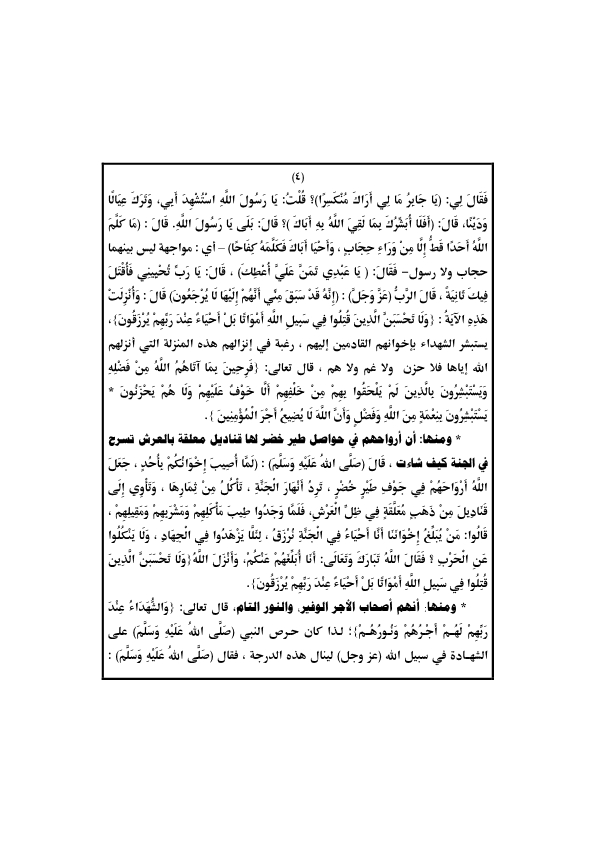 (٤)
فَقَالَ لِي: (يَا جَابِرُ مَا لِي أَرَاكَ مُنْكَسِرًا)؟ قُلْتُ: يَا رَسُولَ اللَّهِ اسْتُشْهِدَ أَبِي، وَتَرَكَ عِيَالًا
وَدَيْنًا، قَالَ: (أَفَلَا أُبَشِّرُكَ بِمَا لَقِيَ اللَّهُ بِهِ أَبَاكَ )؟ قَالَ: بَلَى يَا رَسُولَ اللَّهِ. قَالَ : (مَا كَلَّمَ
اللَّهُ أَحَدًا قَطُّ إِلَّا مِنْ وَرَاءِ حِجَابٍ ، وَأَحْيَا أَبَاكَ فَكَلَّمَهُ كِفَاحًا) – أي : مواجهة ليس بينهما
حجاب ولا رسول– فَقَالَ: ( يَا عَبْدِي تَمَنَّ عَلَيَّ أُعْطِكَ) ، قَالَ: يَا رَبِّ تُحْيِينِي فَأُقْتَلَ
فِيكَ ثَانِيَةً ، قَالَ الرَّبُّ (عَزَّ وَجَلَّ) : (إِنَّهُ قَدْ سَبَقَ مِنِّي أَنَّهُمْ إِلَيْهَا لَا يُرْجَعُونَ) قَالَ : وَأُنْزِلَتْ
هَذِهِ الآيَةُ : {وَلَا تَحْسَبَنَّ الَّذِينَ قُتِلُوا فِي سَبِيلِ اللَّهِ أَمْوَاتًا بَلْ أَحْيَاءٌ عِنْدَ رَبِّهِمْ يُرْزَقُونَ}،
يستبشر الشهداء بإخوانهم القادمين إليهم ، رغبة في إنزالهم هذه المنزلة التي أنزلهم
الله إياها فلا حزن ولا غم ولا هم ، قال تعالى: {فَرِحِينَ بِمَا آتَاهُمُ اللَّهُ مِنْ فَضْلِهِ
وَيَسْتَبْشِرُونَ بِالَّذِينَ لَمْ يَلْحَقُوا بِهِمْ مِنْ خَلْفِهِمْ أَلَّا خَوْفٌ عَلَيْهِمْ وَلَا هُمْ يَحْزَنُونَ *
يَسْتَبْشِرُونَ بِنِعْمَةٍ مِنَ اللَّهِ وَفَضْلٍ وَأَنَّ اللَّهَ لَا يُضِيعُ أَجْرَ الْمُؤْمِنِينَ }.
* ومنها: أن أرواحهم في حواصل طير خضر لها قناديل معلقة بالعرش تسرح
في الجنة كيف شاءت ، قَالَ (صَلَّى اللهُ عَلَيْهِ وَسَلَّمَ) : (لَمَّا أُصِيبَ إِخْوَانُكُمْ بِأُحُدٍ ، جَعَلَ
اللَّهُ أَرْوَاحَهُمْ فِي جَوْفِ طَيْرٍ خُضْرٍ ، تَرِدُ أَنْهَارَ الْجَنَّةِ ، تَأْكُلُ مِنْ ثِمَارِهَا ، وَتَأْوِي إِلَى
قَنَادِيلَ مِنْ ذَهَبٍ مُعَلَّقَةٍ فِي ظِلِّ الْعَرْشِ، فَلَمَّا وَجَدُوا طِيبَ مَأْكَلِهِمْ وَمَشْرَبِهِمْ وَمَقِيلِهِمْ ،
قَالُوا: مَنْ يُبَلِّغُ إِخْوَانَنَا أَنَّا أَحْيَاءٌ فِي الْجَنَّةِ نُرْزَقُ ، لِئَلَّا يَزْهَدُوا فِي الْجِهَادِ ، وَلَا يَنْكُلُوا
عَنِ الْحَرْبِ ؟ فَقَالَ اللَّهُ تَبَارَكَ وَتَعَالَى: أَنَا أُبَلِّغُهُمْ عَنْكُمْ، وَأَنْزَلَ اللَّهُ{وَلَا تَحْسَبَنَّ الَّذِينَ
قُتِلُوا فِي سَبِيلِ اللَّهِ أَمْوَاتًا بَلْ أَحْيَاءٌ عِنْدَ رَبِّهِمْ يُرْزَقُونَ}.
* ومنها: أنهم أصحاب الأجر الوفير، والنور التام، قال تعالى: {وَالشُّهَدَاءُ عِنْدَ
رَبِّهِمْ لَهُـمْ أَجْـرُهُمْ وَنُـورُهُـمْ}؛ لـذا كان حـرص النبي (صَلَّى اللهُ عَلَيْهِ وَسَلَّمَ) على
الشهـادة في سبيل الله (عز وجل) لينال هذه الدرجة ، فقال (صَلَّى اللهُ عَلَيْهِ وَسَلَّمَ) :